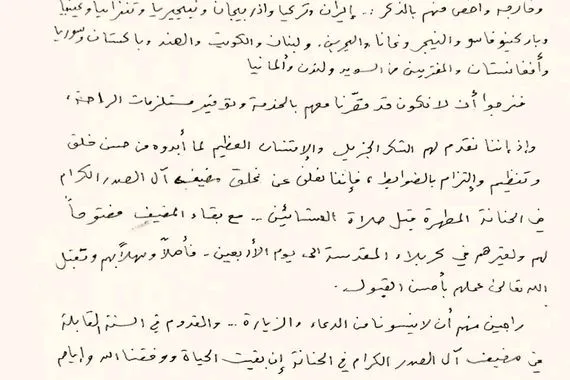 وخارجه واخص منهم بالذكر :.. إيران وتركيا واذربيجان ونيجيريا وتنزانيا وغينيا
وباركينوفاسو والنيجر وغانا والبحرين. ولبنان والكويت والهند وباكستان وسوريا
وأفغانستان والمغتربين من السويد ولندن وألمانيا
فنرجوا أن لا نكون قد قصّرنا معهم بالخدمة وتوفير مستلزمات الراحة،
وإذ إننا نقدم لهم الشكر الجزيل والإمتنان العظيم لما أبدوه من حسن خلق
وتنظيم وإلتزام بالضوابط، فإننا نعلن عن غلق مضيف آل الصدر الكرام
في الحنانة المطهرة قبل صلاة العشائين .. مع بقاء المضيف مفتوحاً
لهم ولغيرهم في كربلاء المقدسة الى يوم الأربعين .. فأهلاً وسهلاً بهم وتقبل
الله تعالى عملهم بأحسن القبول .
راجين منهم أن لا ينسونا من الدعاء والزيارة .. والقدوم في السنة القابلة
في مضيف آل الصدر الكرام في الحنانة إن بقيت الحياة ووفقنا الله وإياهم